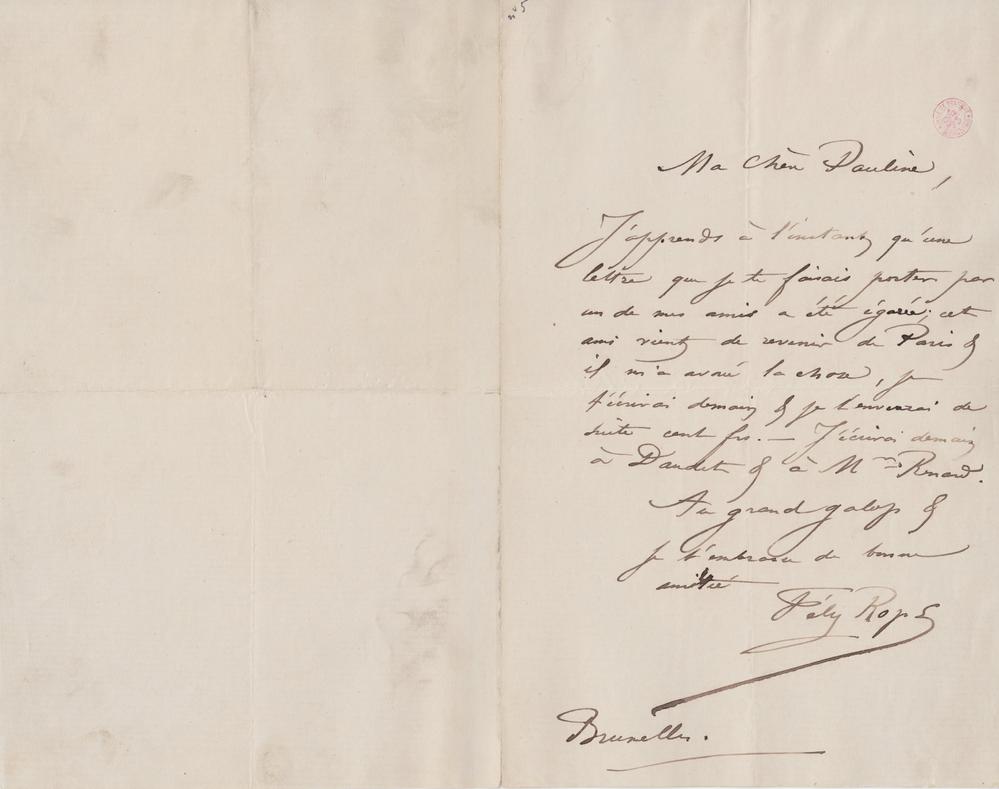 n° 5
Ma chère Pauline,
J'apprends à l'instant qu'une
lettre que je te faisais porter par
un de mes amis a été égarée; cet
ami vient de revenir de Paris &
il m'a avoué la chose, je
t'écrirai demain & je t'enverrai de
suite cent frs. — J'écrirai demain
à Daudet & à Mme Renard.
Au grand galop &
je t'embrasse de bonne
amitié
Fély Rops
Bruxelles.